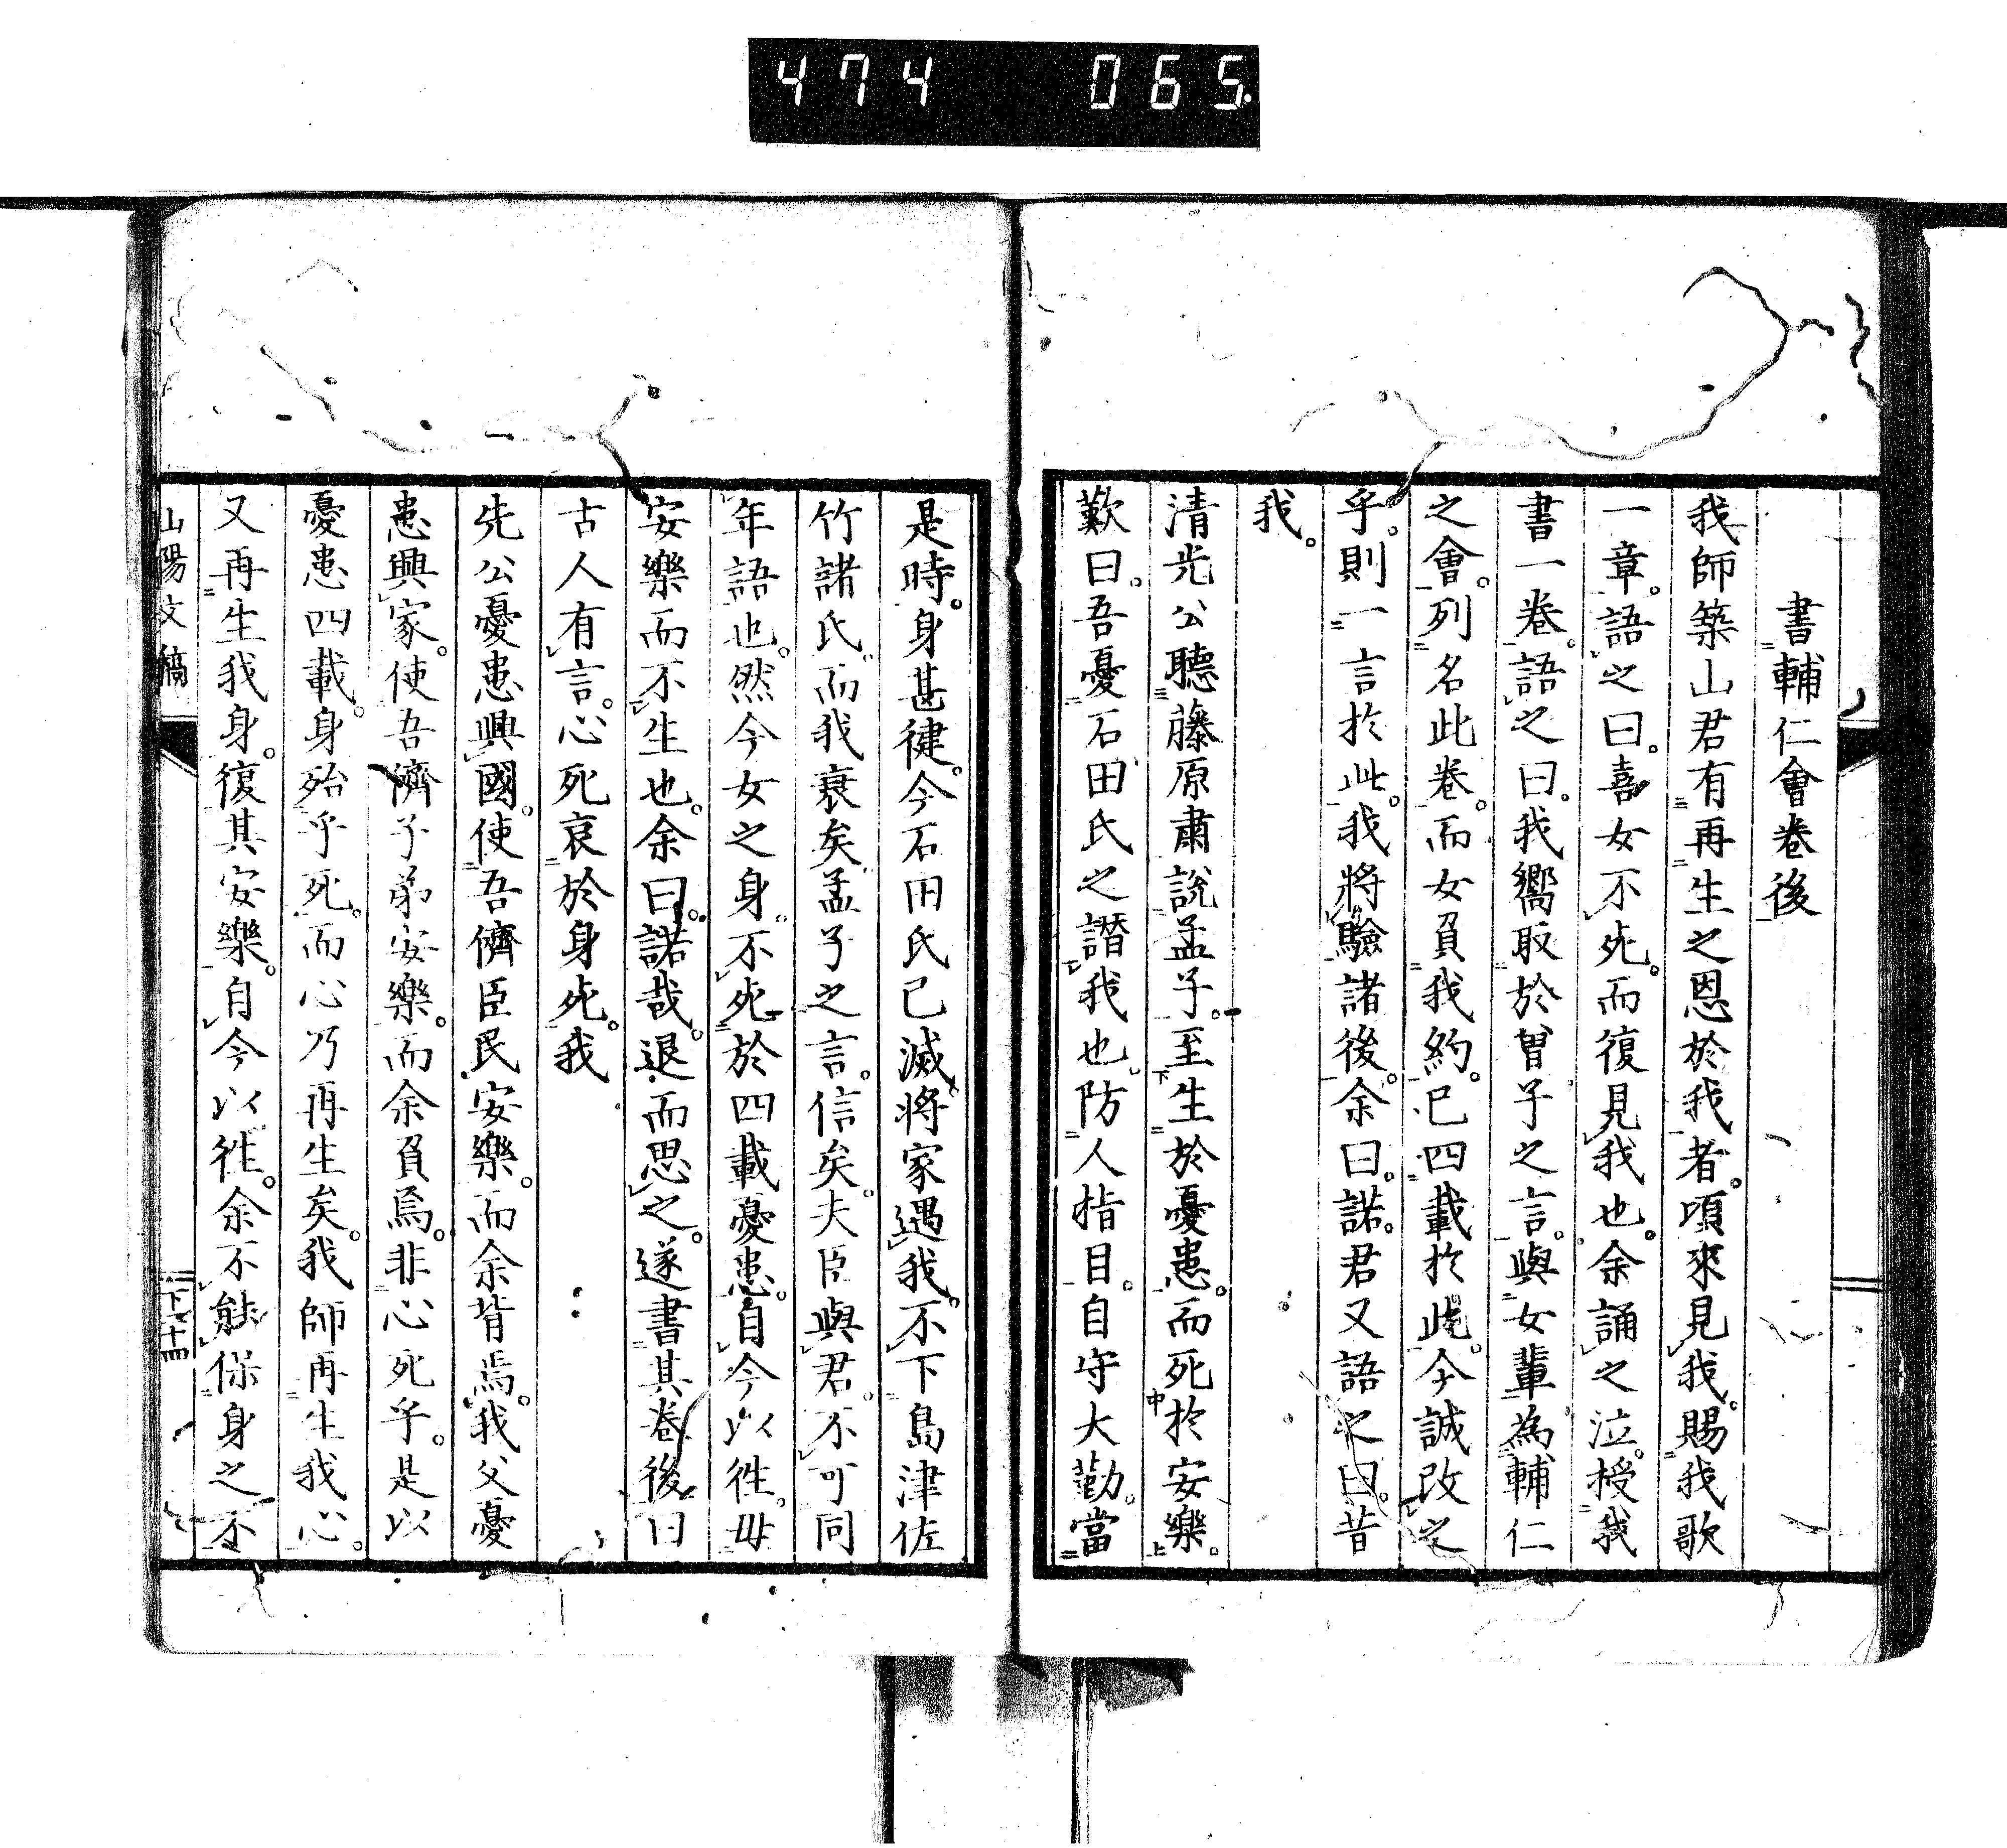 474 065.
書輔仁會卷後
我師築山君有再生之恩於我者。頃來見我。賜我歌
一章。語之曰。喜女不死。而復見我也。余誦之泣。授我
書一卷。語之曰。我嚮取於曾子之言。與女輩為輔仁
之會。列名此卷。而女負我約。已四載於此。今誠改之
乎。則一言於此。我將驗諸後。余曰。諾。君又語之曰。昔
我。
清光公聽藤原肅說孟子。至生於憂患。而死於安樂。
歎曰。吾憂石田氏之譖我也。防人指目。自守大勤。當
是時。身甚健。今石田氏已滅。將家遇我。不下島津佐
竹諸氏。而我衰矣。孟子之言。信矣。夫臣與君。不可同
年語也。然今女之身。不死於四載憂患。自今以徃。毋
安樂而不生也。余曰。諾哉。退而思之。遂書其卷後曰
古人有言。心死哀於身死。我
先公憂患興國。使吾儕臣民安樂。而余背焉。我父憂
患興家。使吾儕子弟安樂。而余負焉。非心死乎。是以
憂患四載。身殆乎死。而心乃再生矣。我師再生我心。
又再生我身。復其安樂。自今以徃。余不能保身之不
山陽文稿
下 十四